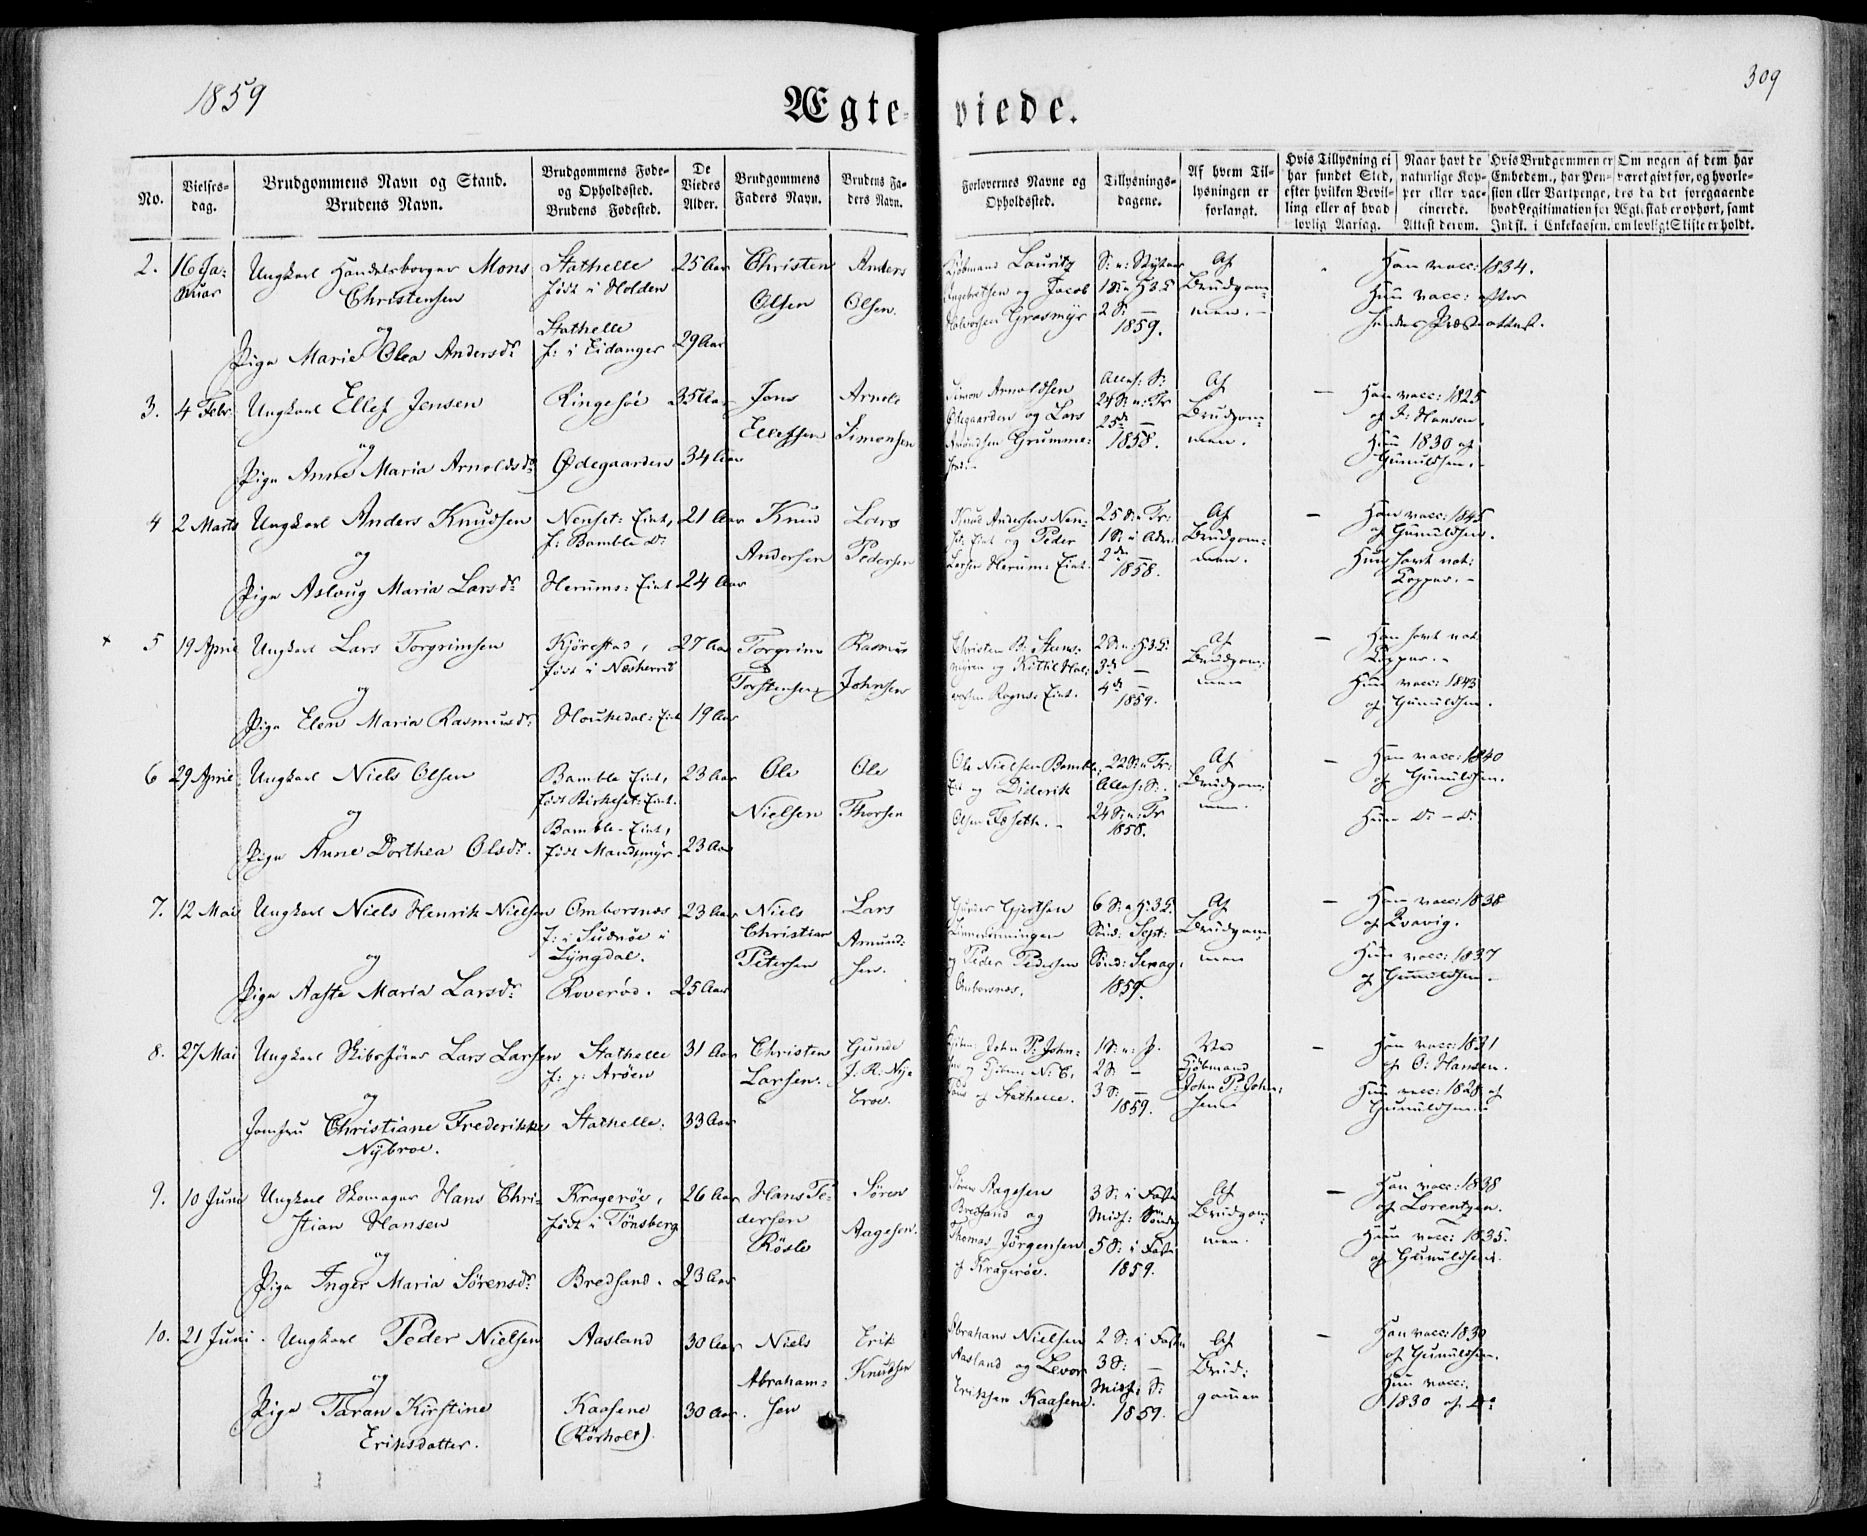 1859
Ægteviede.
309
No.
Vielses-
dag.
Brudgommens Navn og Stand.
Brudens Navn.
Brudgommens Føde-
og Opholdssted.
Brudens Fødested.
De
Viedes
Alder.
Brudgommens
Faders Navn.
Brudens Fa-
ders Navn.
Forlovernes Navne og
Opholdssted.
Tillysnings-
dagene.
Af hvem Til-
lysningen er
forlangt.
Hvis Tillysning ei
har fundet Sted,
efter hvilken Bevil-
ling eller af hvad
lovlig Aarsag.
Naar havt de
naturlige Kop-
per eller vac-
cinerede.
Attest derom.
Hvis Brudgommen er
Embedsm., har Pen-
sion eller Vartpenge,
hvad Legitimation for
Indsk. i Enkekassen.
Om nogen af dem har
været givt før, og hvorle-
des da det foregaaende
Ægteskab er ophørt, samt
om lovligt Skifte er holdt.
2.
16 Ja:
nuar
Ungkarl Handelsborger Mons
Christensen
og
Pige Marie Olea Andersdr
Stathelle
født i Holden
Stathelle
f: i Eidanger
25 Aar
29 Aar
Christen
Olsen
Anders
Olsen.
Kjøbmand Lauritz
Ingebretsen og Jacob
Halvorsen Grasmyr
S: n: Nytaar
1 S: n: H3K
2 S: —
1859.
Af
Brudgom:
men. -
Han vacc: 1834.
Hun vacc: efter
hendes Præsteattest.
3.
4 Febr:
Ungkarl Ellef Jensen
og
Pige Anne Maria Arnoldsdr
Ringesøe
Ødegaarden
35 Aar
34 Aar
Jens
Ellefsen
Arnold
Simonsen
Simon Arnoldsen
Ødegaarden og Lars
Amundsen Grumme:
Alleh: S:
24 S: n: Tr
25de —
1858.
Af
Brudgom:
men.
—
Han vacc: 1825
af J: Hansen.
Hun 1830 af
Gunuldsen. -
4
2 Marts
Ungkarl Anders Knudsen
og
Pige Aslaug Maria Larsdr
Nenset: Eiet,
f: Bamble Do
Herums: Eiet
21 Aar
24 Aar
Knud
Andersen
Lars
Pedersen
Knud Andersen Nen-
set: Eiet og Peder
Larsen Herum: Eiet.
25 S: n: Tr:
1 S: i Adv:
2den —
1858.
Af
Brudgom:
men.
—
Han vacc: 1845
af Gunuldsen.
Hun havt nat:
Kopper. -
+
5
19 April
Ungkarl Lars Torgrimsen
og
Pige Elen Maria Rasmusdr
Kjørestad,
født i Næsherred
Houkedal: Eiet
27 Aar
19 Aar
Torgrim
Torstensen
Rasmus
Johnsen
Christen B: Stens-
myren og Kittil Hal:
vorsen Rogns: Eiet.
2 S: n: H3K
3de —
4de —
1859.
Af
Brudgom:
men
—
Han havt nat
Kopper. -
Hun vacc: 1843
af Gunuldsen.
6
29 April
Ungkarl Niels Olsen
og
Pige Anne Dorthea Olsdr.
Bamble Eiet,
født Birkeset: Eiet.
Bamble - Eiet,
født Mandsmyr
23 Aar
23 Aar
Ole
Nielsen
Ole
Thorsen
Ole Nielsen Bamble
Eiet og Diderik
Olsen Fæseth. -
22 S: n: Tr:
Alleh: S:
24 S: n: Tr
1858.
Af
Brudgom:
men.
—
Han vacc: 1840
af Gunuldsen.
Hun Do - Do
7.
12 Mai
Ungkarl Niels Henrik Nielsen
og
Pige Aaste Maria Larsdr
Omborsnæs
f: i Sudnøe i
Lyngdal.
Roverød.
23 Aar
25 Aar
Niels
Christian
Petersen
Lars
Amund:
sen.
Gjertsen
og Peder Pedersen
Omborsnæs.
6 S: n: H3K
Sønd: Sept:
Sønd: Sexag:
1859.
Af
Brudgom:
men
—
Han vacc: 1838
af
Hun vacc: 1837
af Gunuldsen. -
8.
27 Mai
Ungkarl Skibsfører Lars Larsen
og
Jomfru Christiane Frederikke
Nybroe.
Stathelle
f: p: Arøen
Stathelle:
31 Aar
33 Aar
Christen
Larsen.
Gunde
J. R. Ny:
broe.
John P: John:
sen og
af Stathelle.
1 S: n: P.
2 S —
3 S: —
1859.
Ved
Kjøbmand
John P: John:
sen
—
Han vacc: 1831
af O: Hansen.
Hun vacc: 1828 af
Gunuldsen.
9.
10 Juni
Ungkarl Skomager Hans Chri-
stian Hansen
og
Pige Inger Maria Sørensdr
Kragerøe,
født i Tønsberg
Bredsand.
26 Aar
23 Aar
Hans Pe-
dersen
Røsle
Søren
Aagesen.
Søren Aagesen
Bredsand og
Thomas Jørgensen
af Kragerøe.
3 S: i Faste
Midf: Søndag
5 S: i Faste
1859.
Af
Brudgom:
men.
—
Han vacc: 1838
af Lorentzen.
Hun vacc: 1835.
af Gunuldsen.
10.
21 Juni.
Ungkarl Peder Nielsen
og
Pige Taran Kirstine
Eriksdatter.
Aasland
Kaasene
(Rørholt).
30 Aar
30 Aar.
Niels
Abraham:
sen
Erik
Knudsen
Abraham Nielsen
Aasland og Levor
Eriksen Kaasene.
2 S: i Fasten
3 S: —
Midf: S:
1859.
Af
Brud:
gommen
—
Han vacc: 1830
af Gunuldsen.
Hun vacc:
1830 af Do